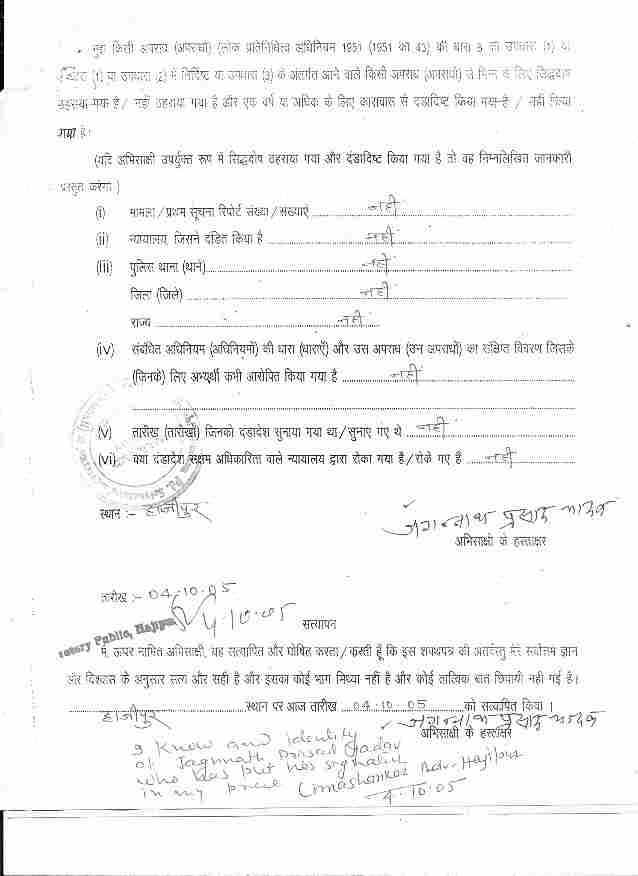 मुझे किसी अपराध (अपराधों) (लोक प्रतिनिधित्व अधिनियम 1951 (1951 का 43) की धारा 8 की उपधारा (1) या
(1) या उपधारा (2) में निर्दिष्ट या उपधारा (3) के अंतर्गत आने वाले किसी अपराध (अपराधों) से भिन्न के लिए सिद्धदोष
ठहराया गया है / नहीं ठहराया गया है और एक वर्ष या अधिक के लिए कारावास से दंडादिष्ट किया गया है / नहीं किया
गया है।
(यदि अभिसाक्षी उपर्युक्त रूप में सिद्धदोष ठहराया गया और दंडादिष्ट किया गया है तो वह निम्नलिखित जानकारी
प्रस्तुत करेगा)
(i) मामला / प्रथम सूचना रिपोर्ट संख्या / संख्याएं ........ नहीं
(ii) न्यायालय, जिसने दंडित किया है ........ नहीं
(iii) पुलिस थाना (थाने) ........ नहीं
जिला (जिले) ........ नहीं
राज्य ........ नहीं
(iv) संबंधित अधिनियम (अधिनियमों) की धारा (धाराएँ) और उस अपराध (उन अपराधों) का संक्षिप्त विवरण जिसके
(जिनके) लिए अभ्यर्थी कभी आरोपित किया गया है ........ नहीं
(v) तारीख (तारीखों) जिनको दंडादेश सुनाया गया था / सुनाए गए थे ........ नहीं
(vi) क्या दंडादेश सक्षम अधिकारिता वाले न्यायालय द्वारा रोका गया है / रोके गए हैं ........ नहीं
स्थान :- हाजीपुर
जगन्नाथ प्रसाद यादव
अभिसाक्षी के हस्ताक्षर
तारीख :- 04.10.05
4.10.05
सत्यापन
Notary Public, Hajipur
मैं, ऊपर नामित अभिसाक्षी, यह सत्यापित और घोषित करता / करती हूँ कि इस शपथपत्र की अंतर्वस्तु मेरे सर्वोत्तम ज्ञान
और विश्वास के अनुसार सत्य और सही है और इसका कोई भाग मिथ्या नहीं है और कोई तात्विक बात छिपायी नहीं गई है।
हाजीपुर ........ स्थान पर आज तारीख ..... 04.10.05 ........ को सत्यापित किया।
जगन्नाथ प्रसाद यादव
अभिसाक्षी के हस्ताक्षर
I Know and identity
of Jagnnath Prasad Yadav
who has put his signature
in my Umashankar Adv. Hajipur
4.10.05